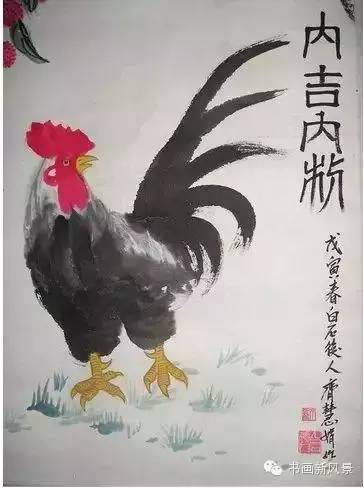 大吉大利
戊寅春白石後人齊慧娟作
书画新风景